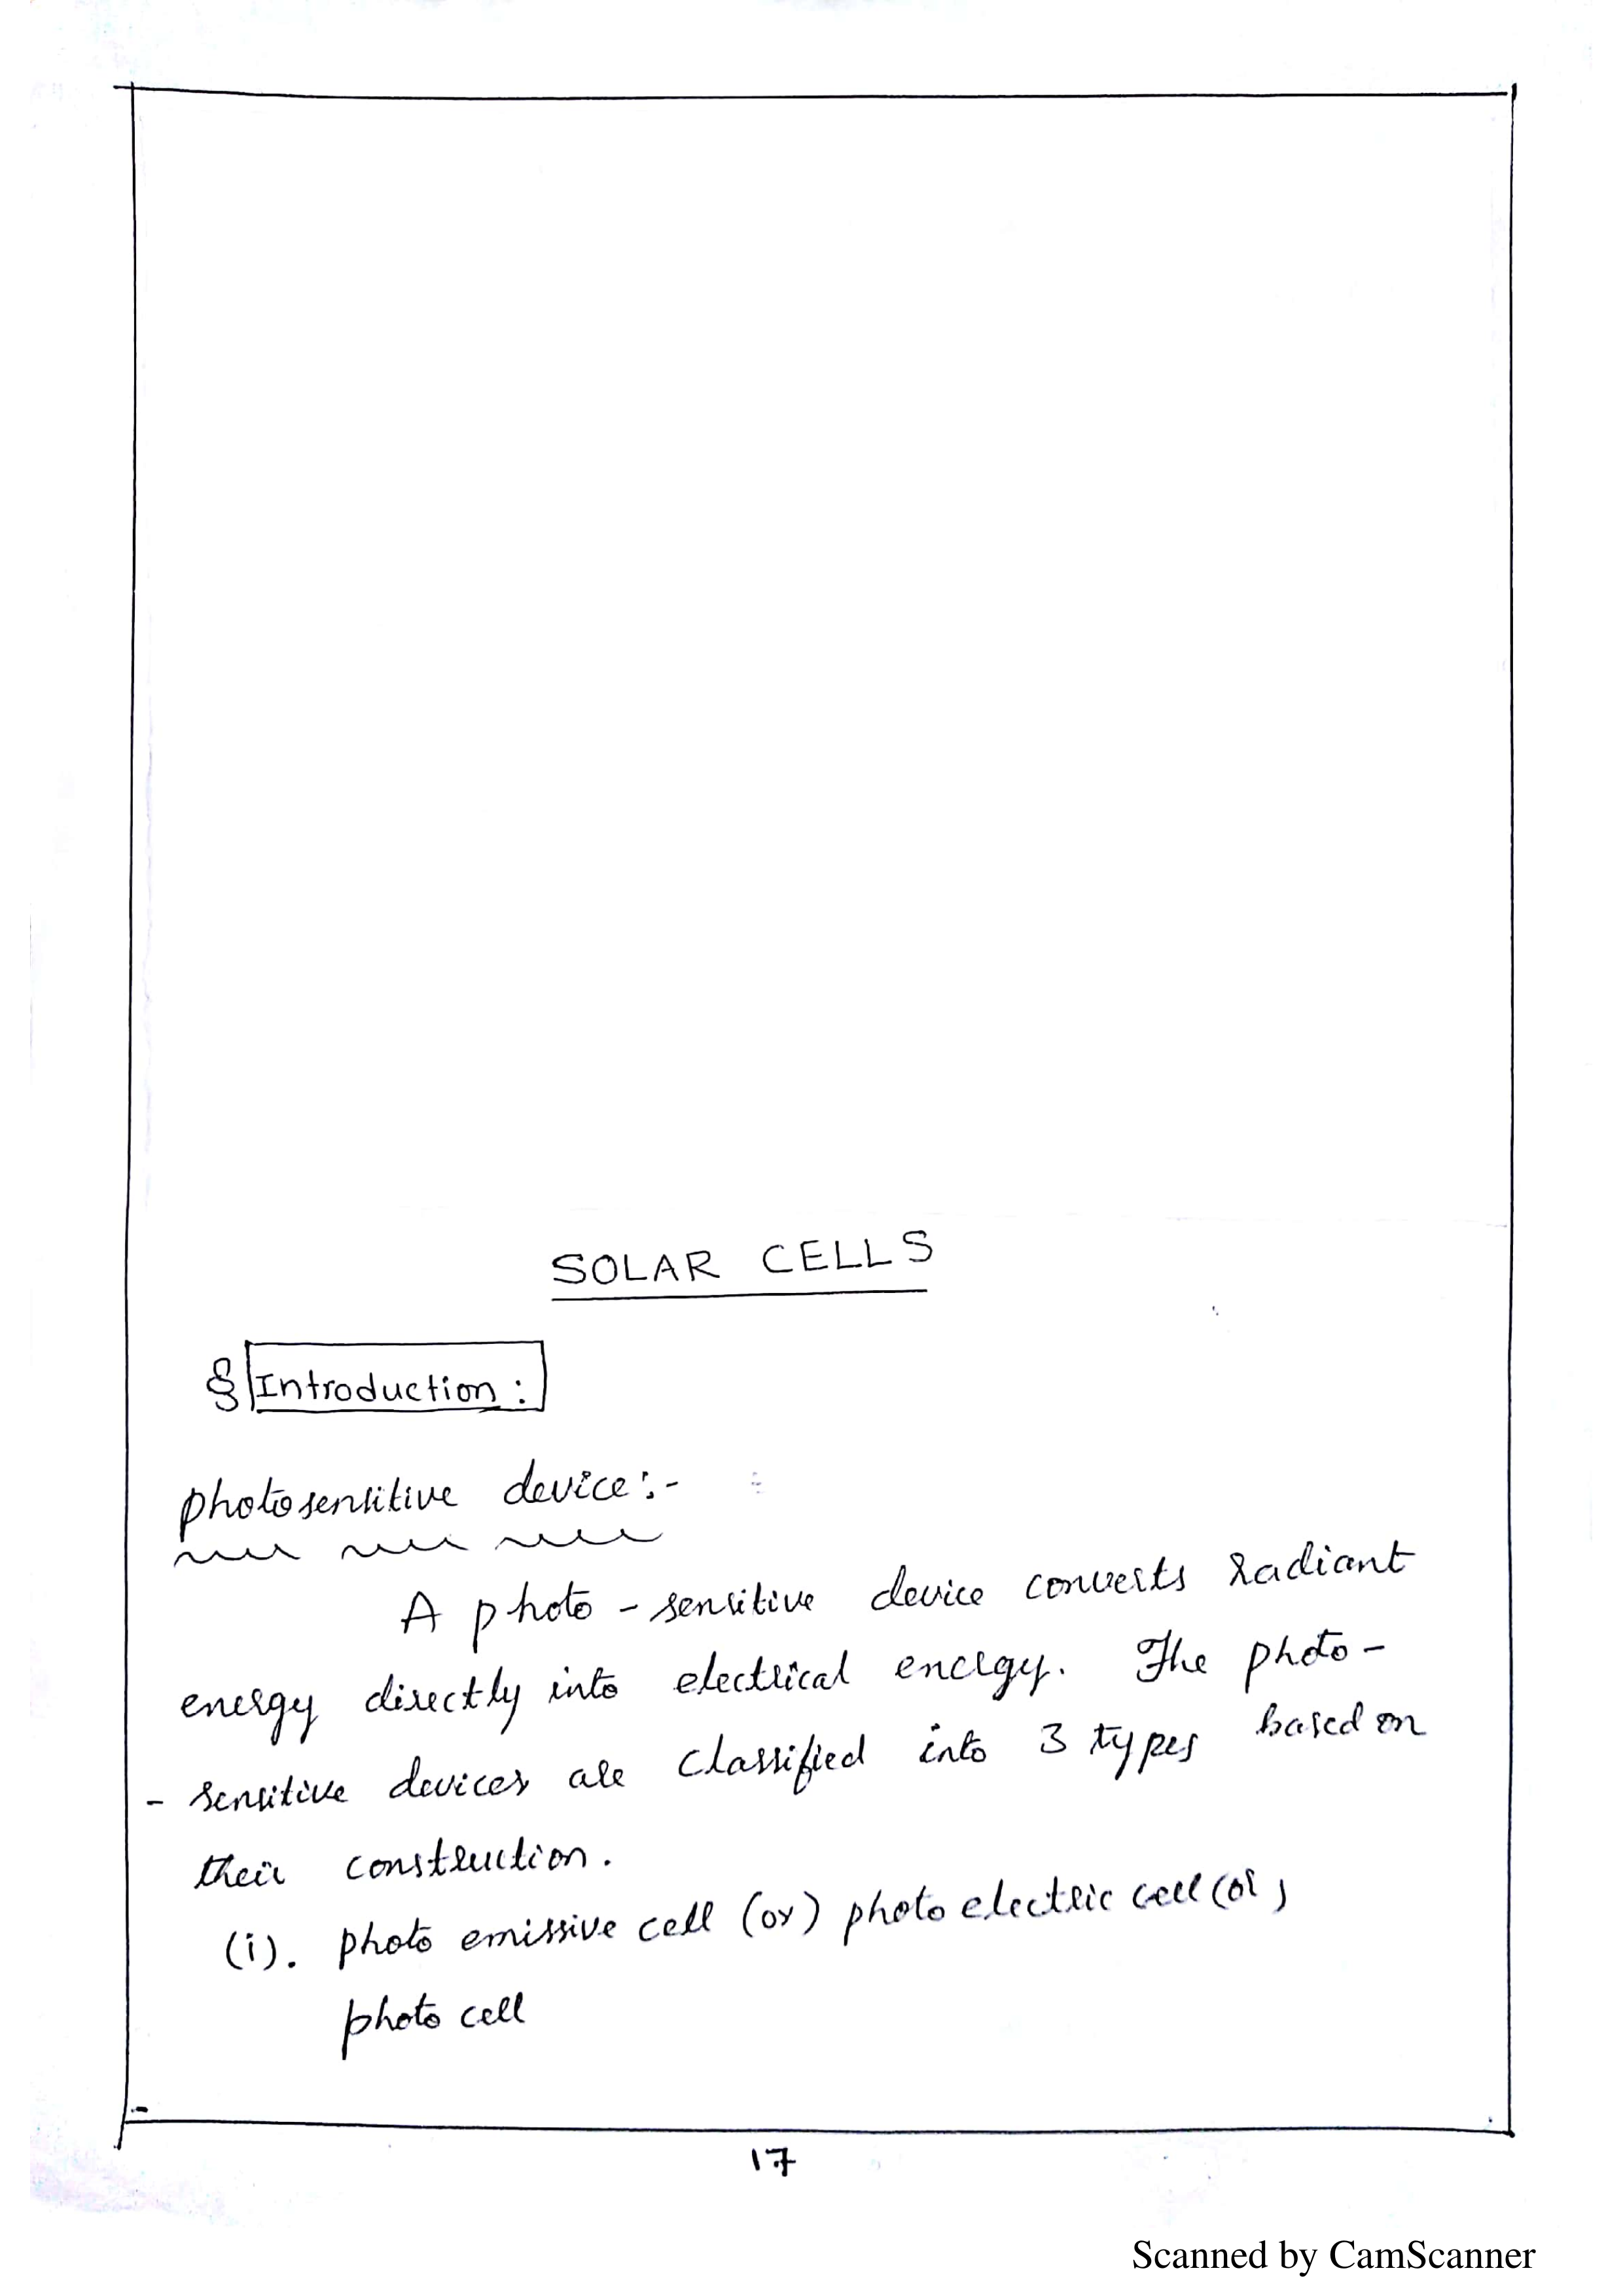 SOLAR CELLS
§ Introduction :
photosensitive device:-
A photo - sensitive device converts radiant
energy directly into electrical energy. The photo -
- sensitive devices are classified into 3 types based on
their construction.
(i). photo emissive cell (or) photo electric cell (or)
photo cell
17
Scanned by CamScanner